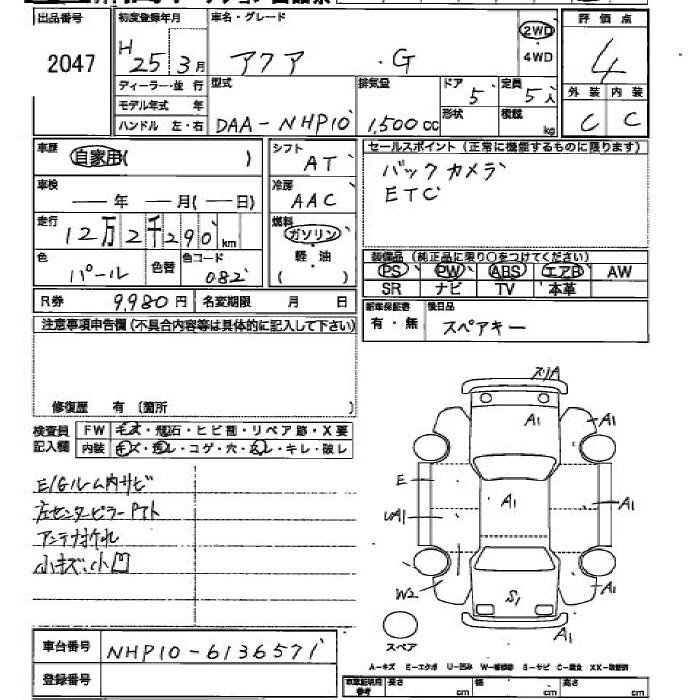 出品番号 初度登録年月 車名・グレード 評価点
2047 H 25 3月 アクア G 2WD 4WD 4
ディーラー・並行 型式 排気量 ドア 定員 外装 内装
モデル年式 年 5 5人
ハンドル 左・右 DAA-NHP10 1,500cc 形状 積載 kg C C
車歴 自家用( ) シフト AT セールスポイント(正常に機能するものに限ります)
車検 ― 年 ― 月( ― 日) 冷房 AAC バックカメラ
ETC
走行 12万2千290km 燃料 ガソリン
色 パール 色替 色コード 082 軽・油 ( )
装備品(純正品に限り○をつけてください)
PS PW ABS エアB AW
SR ナビ TV 本革
R券 9,980円 名変期限 月 日
新車保証書 有・無 後日品 スペアキー
注意事項申告欄(不具合内容等は具体的に記入して下さい)
修復歴 有(箇所 )
検査員記入欄 FW キズ・飛石・ヒビ割・リペア跡・X要
内装 キズ・汚レ・コゲ・穴・切レ・破レ
E/Gルーム内サビ
左センターピラーPアト
アンテナ折れ
小キズ、小凹
スリA
A1 A1
E
A1 A1
A1
W2 S1 A1
A1
スペア
A-キズ E-エクボ U-凹み S-サビ C-腐食
車台番号 NHP10-6136571
登録番号
長さ cm 幅 cm 高さ cm